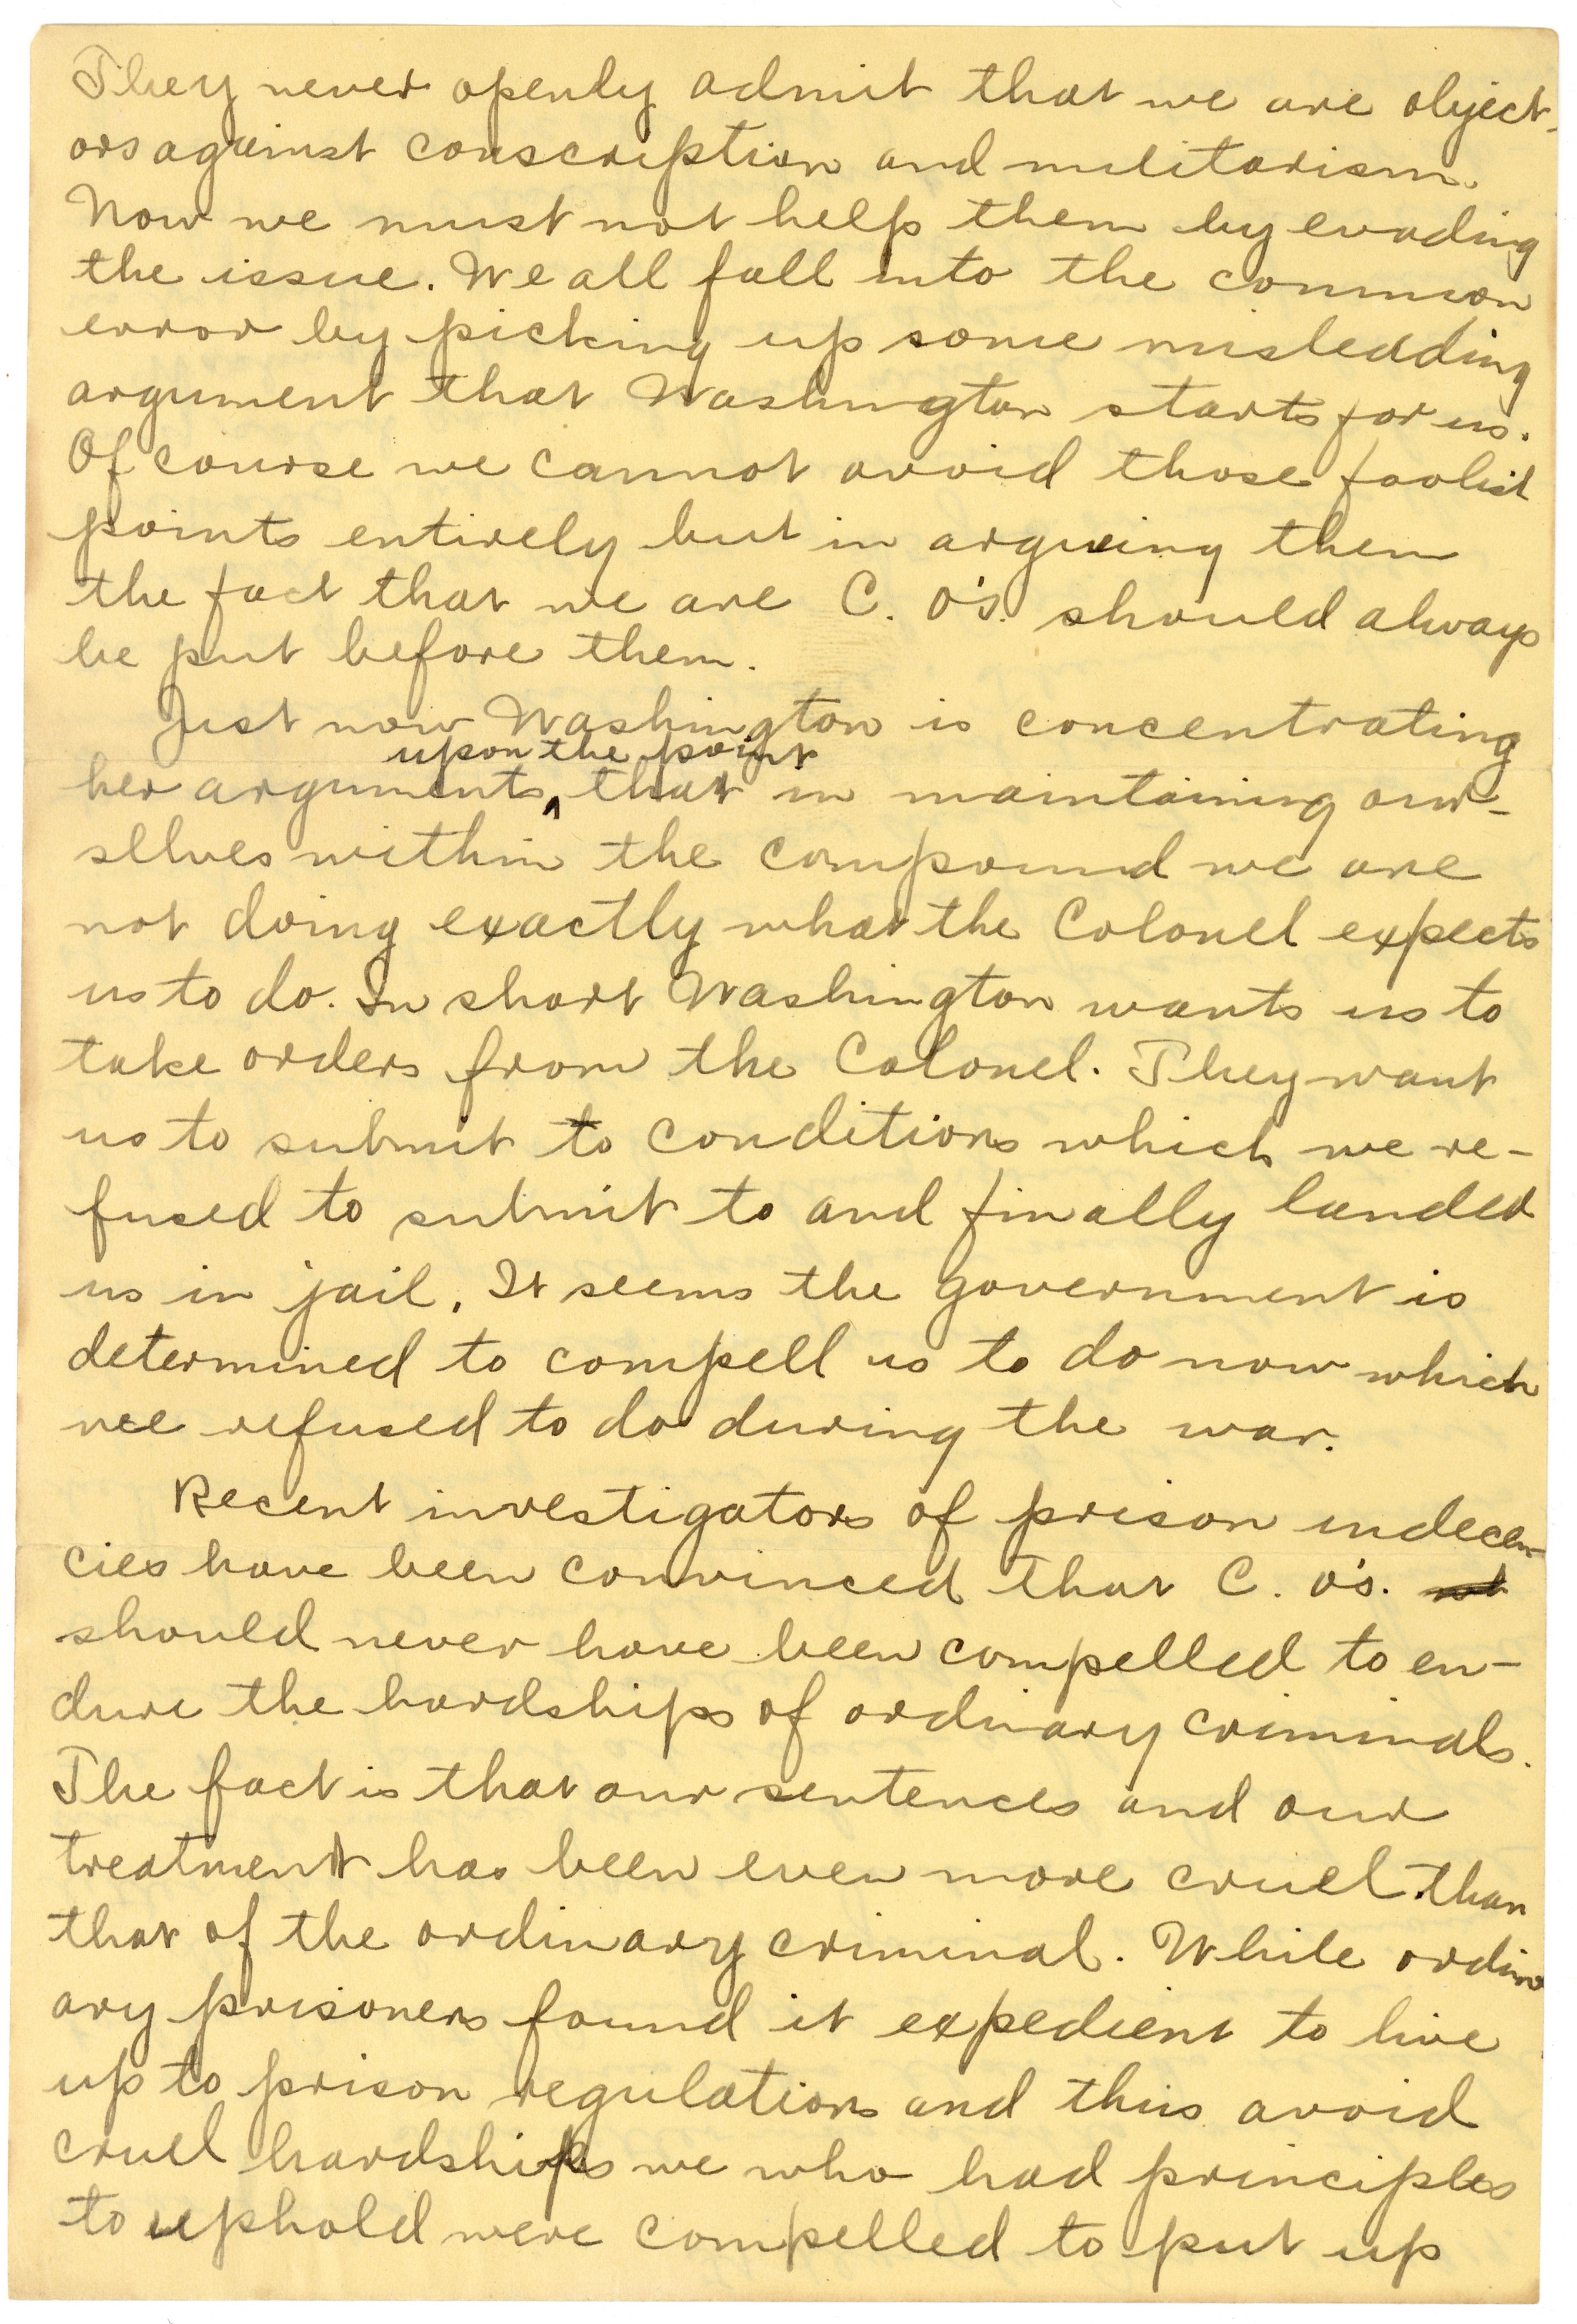 They never openly admit that we are object-
ors against conscription and militarism.
Now we must not help them by evading
the issue. We all fall into the common
error by picking up some misleading
argument that Washington starts for us.
Of course we cannot avoid those foolish
points entirely but in argueing them
the fact that we are C. O's. should always
be put before them.
Just now Washington is concentrating
upon the point
her arguments ^ that in maintaining our-
sllves within the compound we are
not doing exactly what the Colonel expects
us to do. In short Washington wants us to
take orders from the Colonel. They want
us to submit to conditions which we re-
fused to submit to and finally landed
us in jail. It seems the government is
determined to compell us to do now which
wee refused to do during the war.
Recent investigators of prison indecen-
cies have been convinced that C. O's.
should never have been compelled to en-
dure the hardships of ordinary criminals.
The fact is that our sentences and our
treatment has been even more cruel than
that of the ordinary criminal. While ordin-
ary prisoners found it expedient to live
up to prison regulations and thus avoid
cruel hardships we who had principles
to uphold were compelled to put up